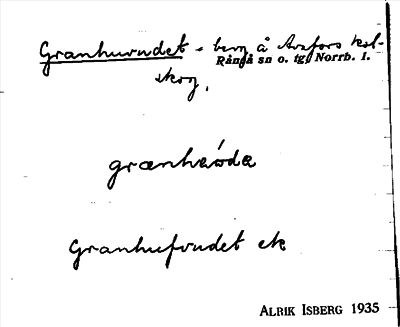 Granhuvudet - berg å Avafors kol-
Råneå sn o. tg. Norrb. l.
skog.
granhaóda
Granhufvudet ek
ALRIK ISBERG 1935